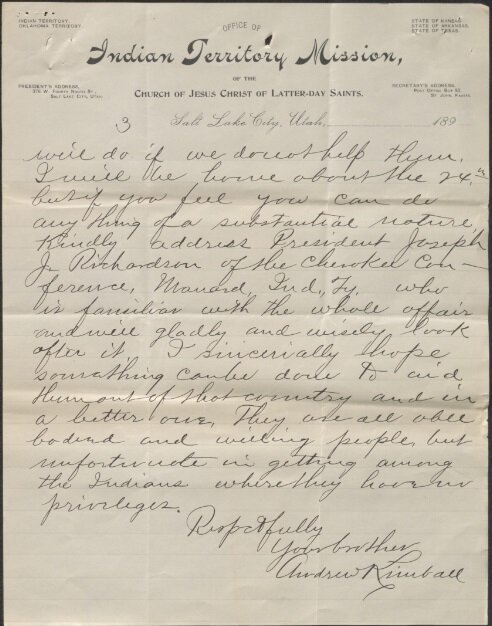 INDIAN TERRITORY.
OKLAHOMA TERRITORY.
STATE OF KANSAS.
STATE OF ARKANSAS.
STATE OF TEXAS.
OFFICE OF
Indian Territory Mission,
OF THE
CHURCH OF JESUS CHRIST OF LATTER-DAY SAINTS.
PRESIDENT'S ADDRESS,
376 W. FOURTH NORTH ST.,
SALT LAKE CITY, UTAH.
SECRETARY'S ADDRESS,
POST OFFICE BOX 93
ST. JOHN, KANSAS.
3
Salt Lake City, Utah, 189
will do if we do not help them.
I will be home about the 24th
but if you feel you can do
any thing of a substantial nature,
Kindly address President Joseph
J. Richardson of the Cherokee Con-
ference, Manard, Ind., Ty. who
is familiar with the whole affair
and will gladly and wisely look
after it, I sincerially hope
something can be done to aid
them out of that country and in
a better one, They are all able
bodied and willing people, but
unfortunate in getting among
the Indians where they have no
privileges.
Respectfully
Your brother
Andrew Kimball